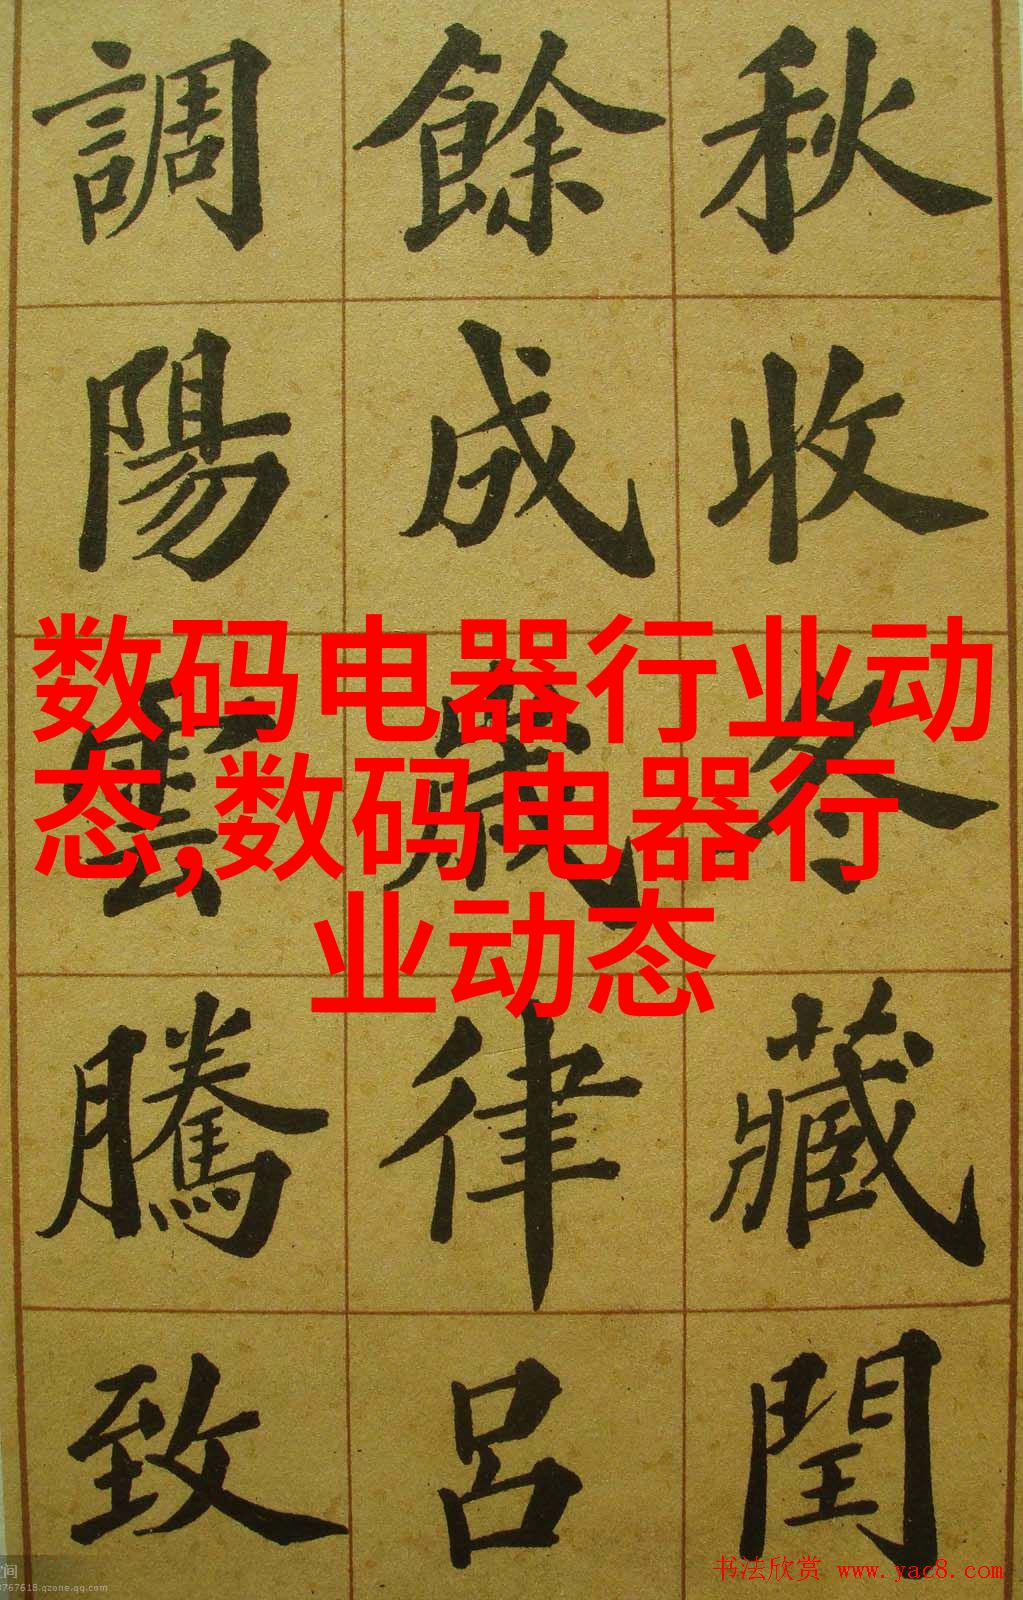 秋收冬藏閏
餘成歲律呂
調陽雲騰致
数码电器行业动
态,数码电器行
业动态
书法欣赏 www.yac8.com
空间
3767618.qzone.qq.com